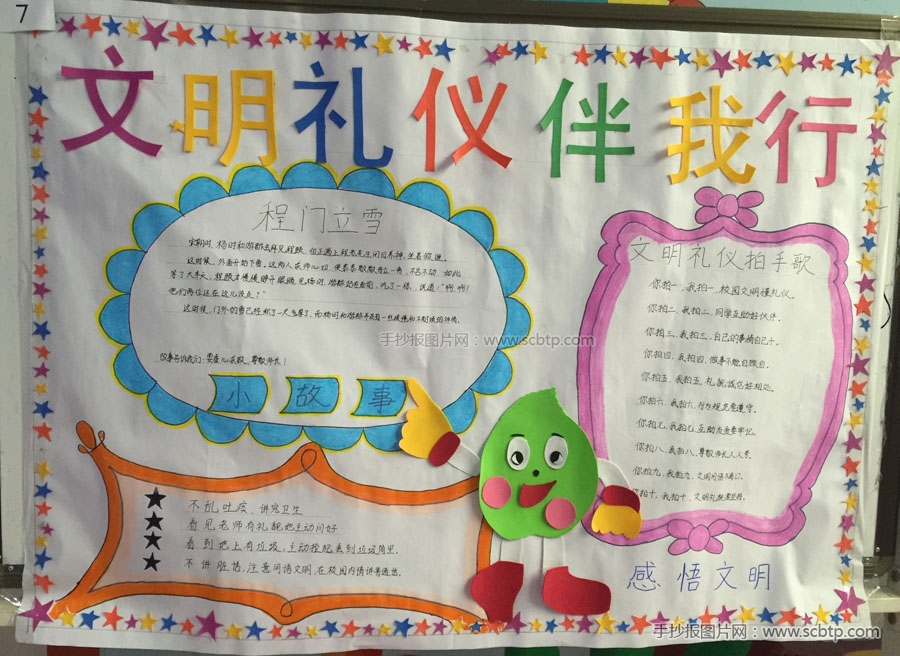 7
文明礼仪伴我行
程门立雪
宋朝时,杨时和游酢去拜见程颐,但正遇上程老先生闭目养神,坐着假睡。
这时候,外面开始下雪。这两人求师心切,便恭恭敬敬侍立一旁,不言不动,如此
等了大半天,程颐才慢慢睁开眼睛,见杨时、游酢站在面前,吃了一惊,说道:"啊,啊!
他们两位还在这儿没走?"
这时候,门外的雪已经积了一尺多厚了,而杨时和游酢并没有一丝疲倦和不耐烦的神情。
故事告诉我们:要虚心求教,尊敬师长!
小故事
手抄报图片网:www.scbtp.com
文明礼仪拍手歌
你拍一,我拍一,校园文明懂礼仪。
你拍二,我拍二,同学互助好伙伴。
你拍三,我拍三,自己的事情自己干。
你拍四,我拍四,做事不能自顾自。
你拍五,我拍五,礼貌诚信好相处。
你拍六,我拍六,行为规范要遵守。
你拍七,我拍七,互助友爱要牢记。
你拍八,我拍八,尊敬师长人人夸。
你拍九,我拍九,文明用语不离口。
你拍十,我拍十,文明礼貌要坚持。
不乱吐痰,讲究卫生
看见老师有礼貌地主动问好
看到地上有垃圾,主动捡起丢到垃圾筒里。
不讲脏话,注意用语文明,在校园内请讲普通话。
感悟文明
手抄报图片网:www.scbtp.com